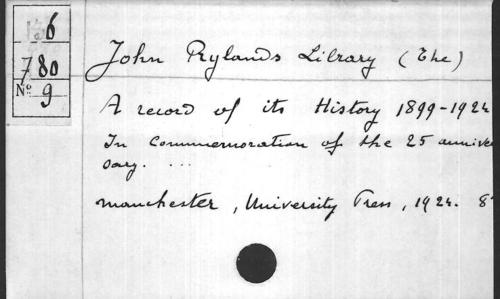 6
780
Nº 9
John Rylands Library (The)
A record of its History 1899-1924
In commemoration of the 25 anniver
sary. ...
Manchester, University Press, 1924. 8º